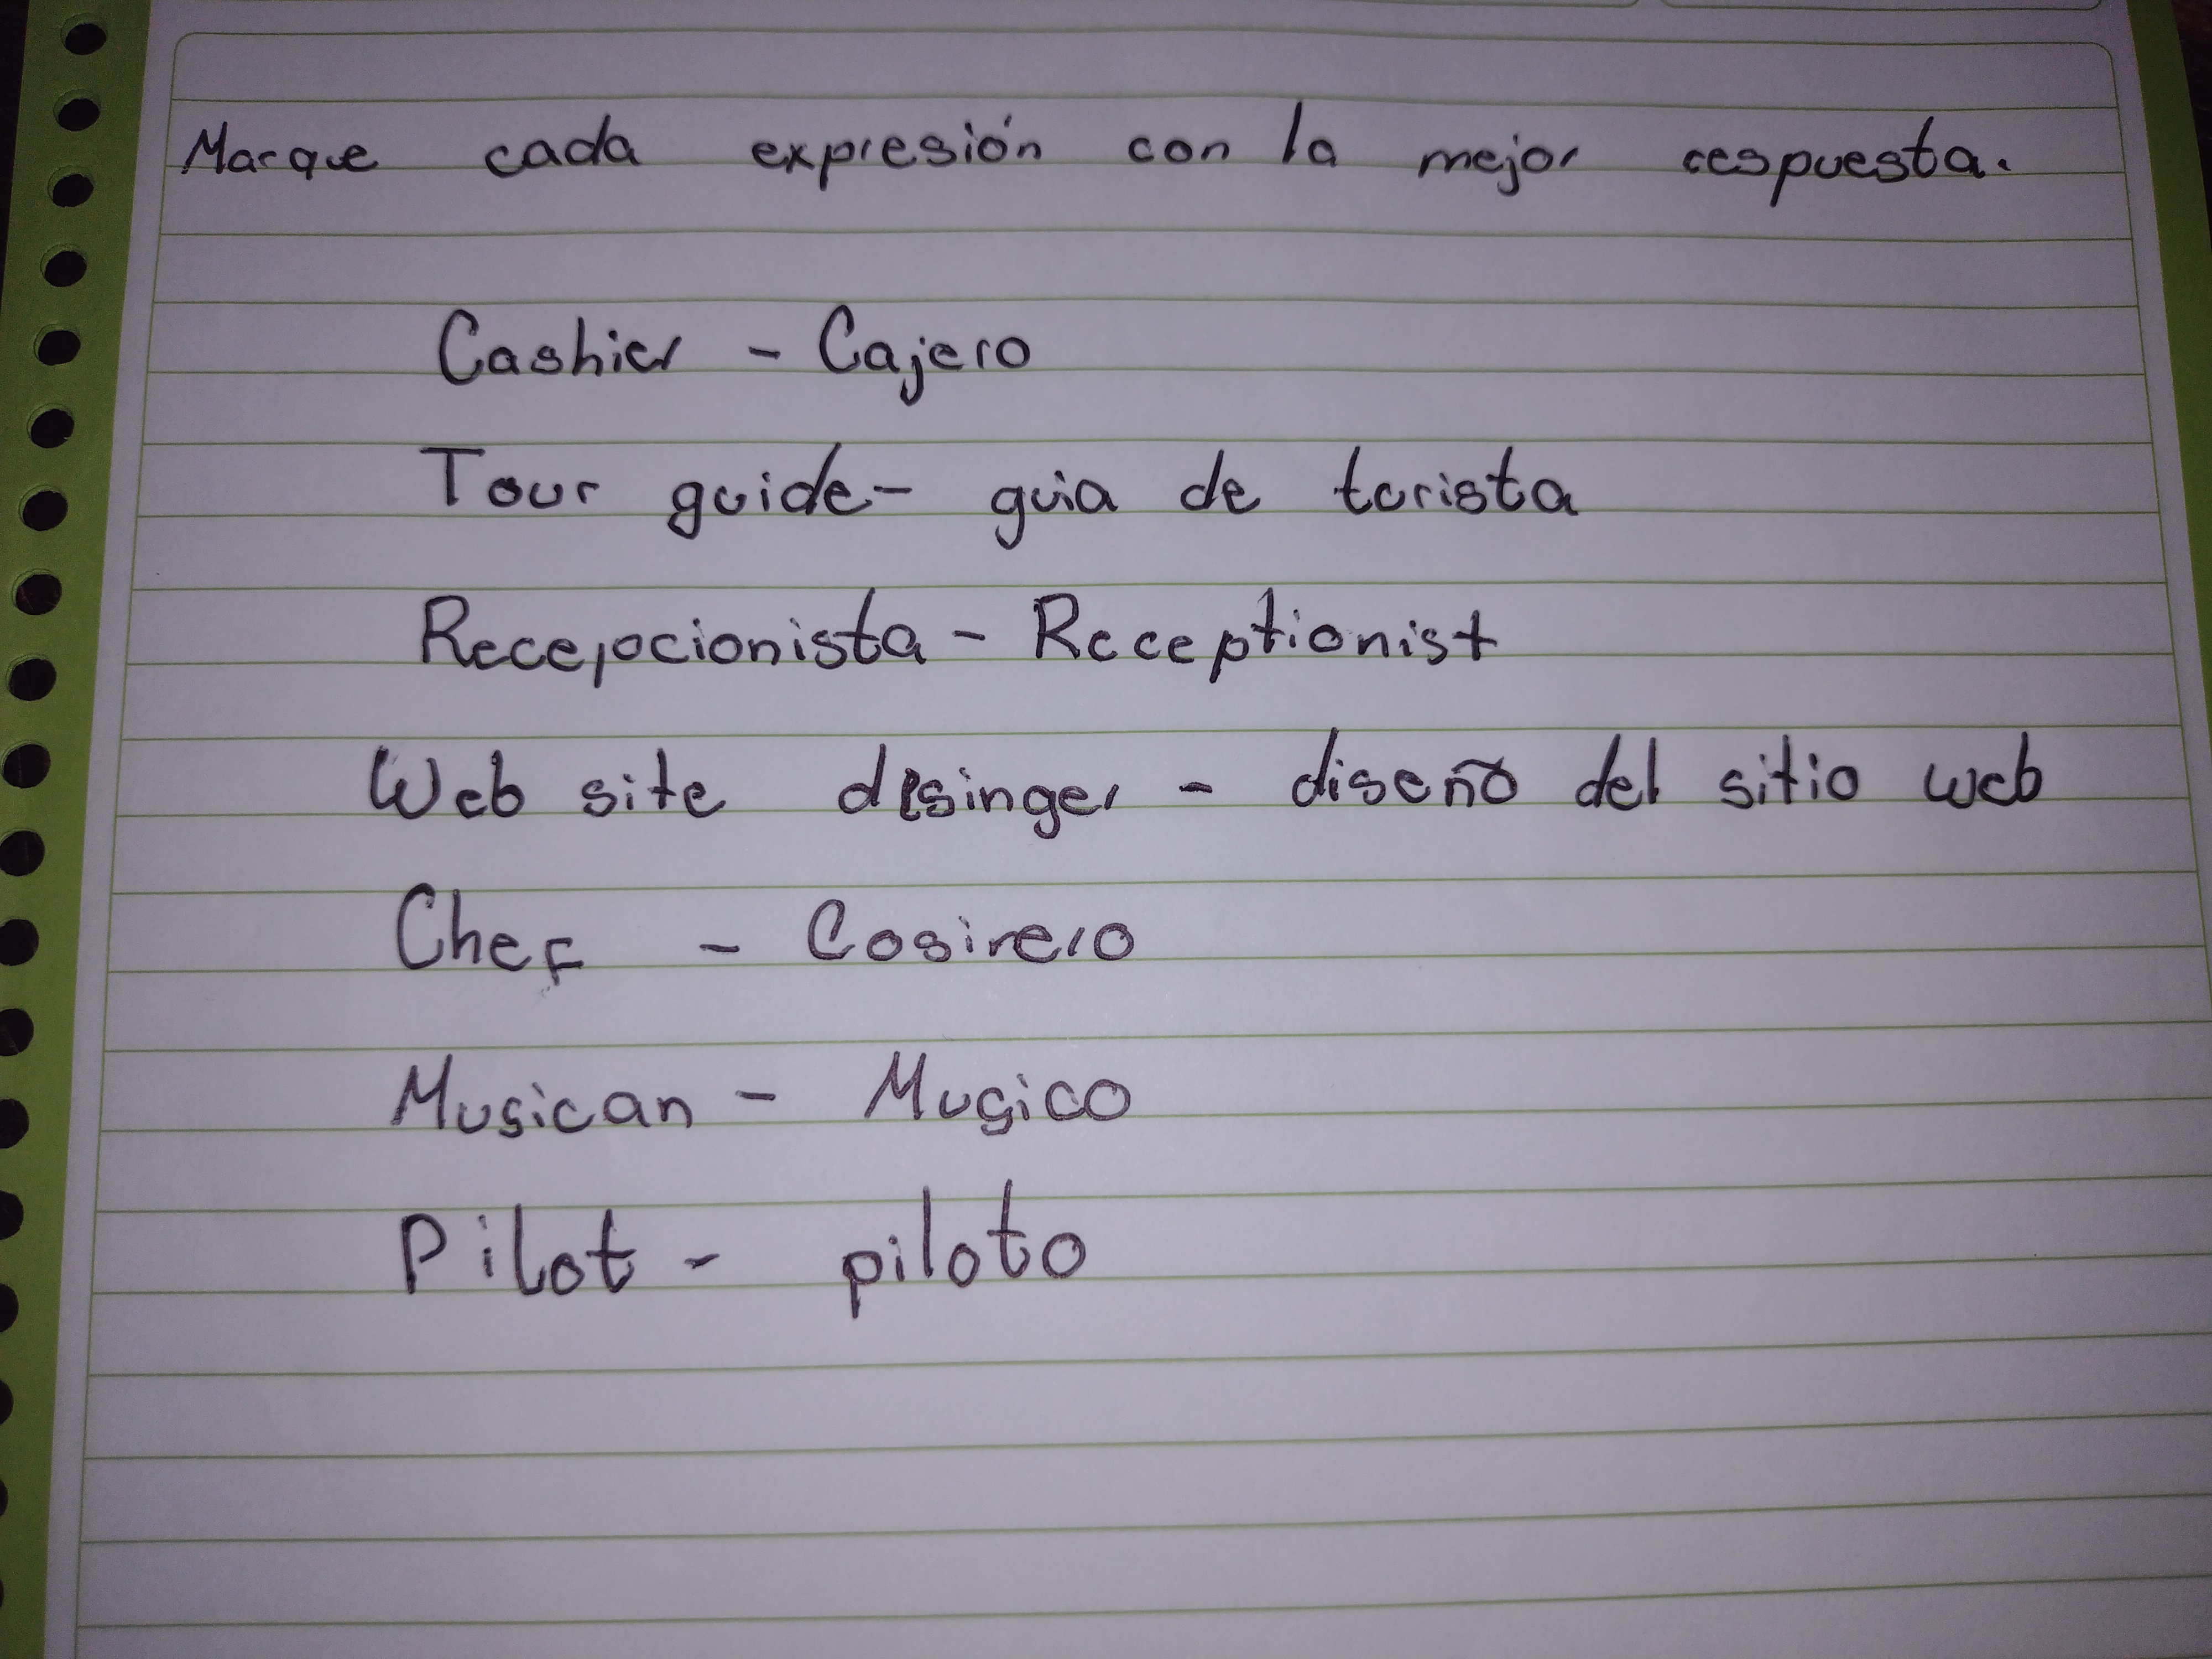 Marque cada expresión con la mejor respuesta.
Cashier - Cajero
Tour guide - guia de turista
Recepcionista - Receptionist
Web site desinger - diseño del sitio web
Chef - Cosinero
Musican - Musico
Pilot - piloto